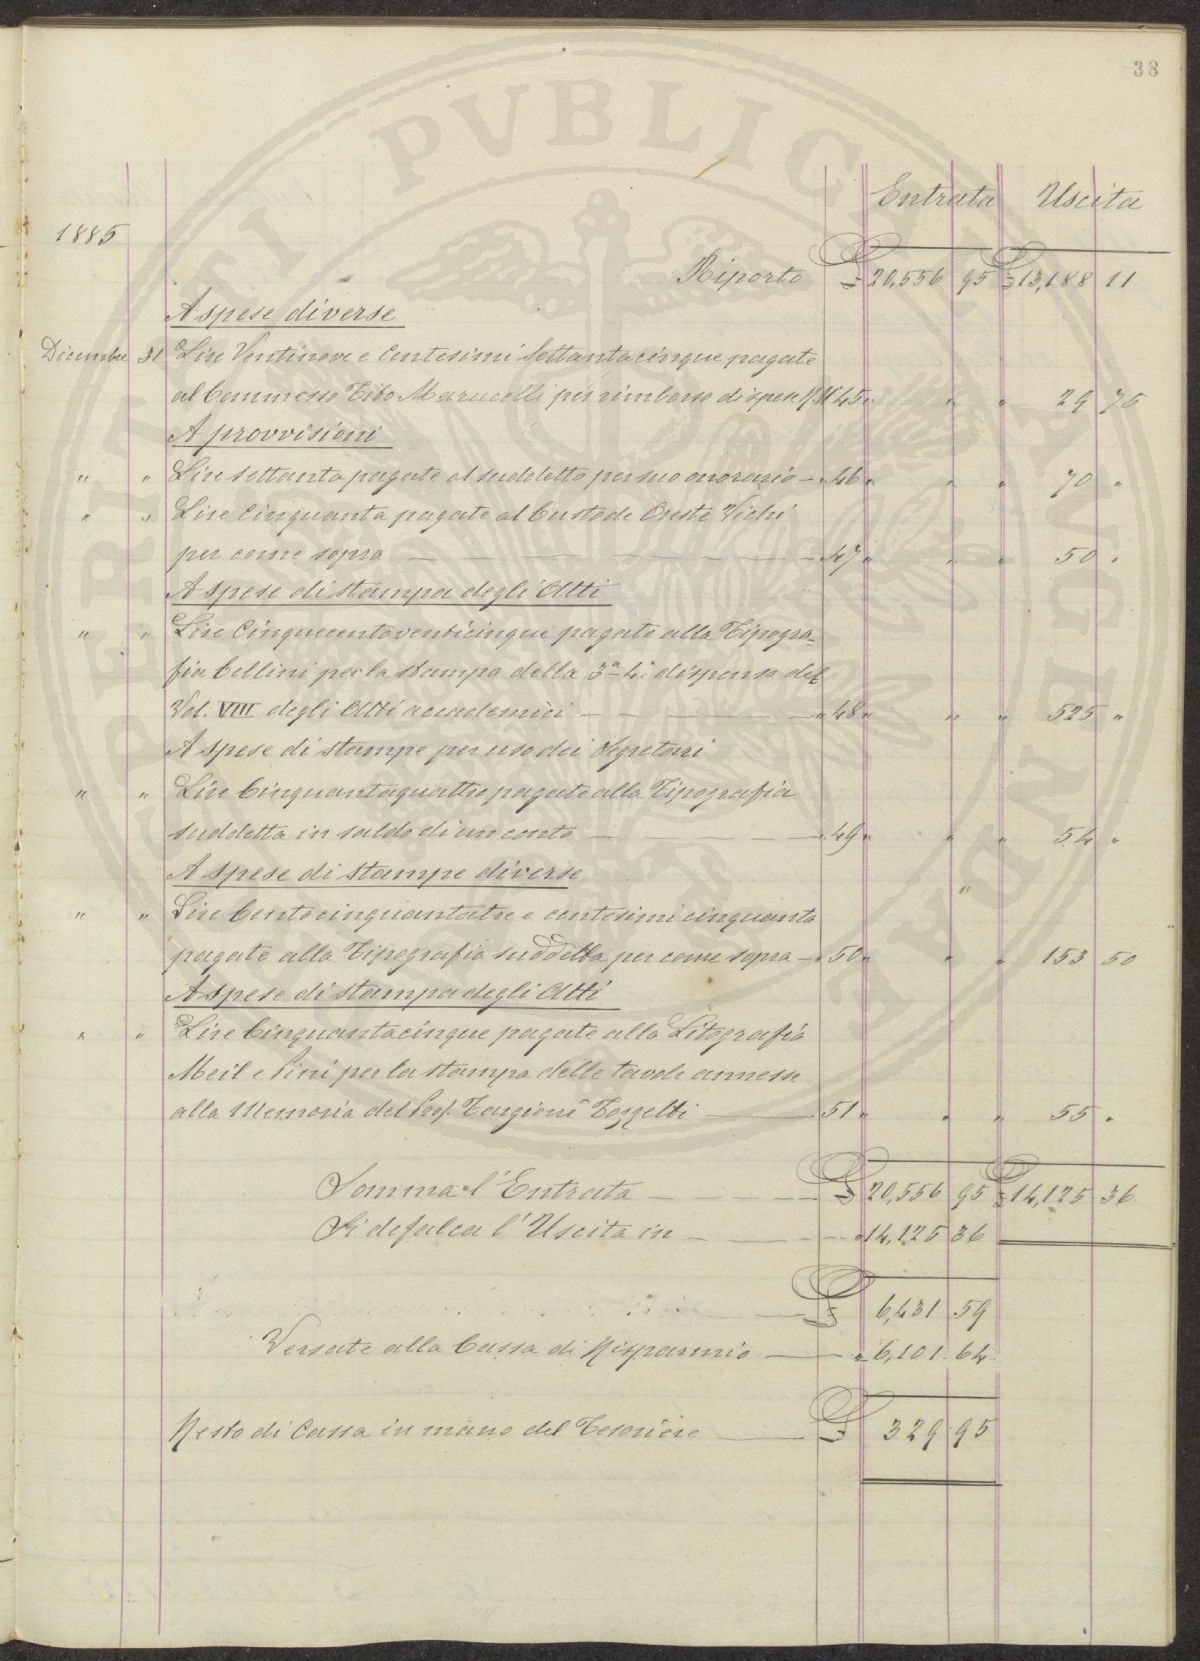 38
Entrata Uscita
1885
Riporto £ 20,556 95 £ 13,188 11
A spese diverse
Dicembre 31 Lire Ventinove e Centesimi Settantacinque pagate
al Commesso Tito Marucelli per rimborso di spese N.º 45 " " " 29 75
A provvisioni
" " Lire settanta pagate al suddetto per suo onorario — " 46 " " " 70 "
" " Lire Cinquanta pagate al Custode Oreste Vichi
per come sopra — " 47 " " " 50 "
A spese di stampa degli Atti
" " Lire Cinquecentoventicinque pagate alla Tipogra-
fia Cellini per la stampa della 3ª - 4ª dispensa del
Vol. VIII degli Atti accademici — " 48 " " " 525 "
A spese di stampe per uso dei Segretari
" " Lire Cinquantaquattro pagate alla Tipografia
suddetta in saldo di un conto — " 49 " " " 54 "
A spese di stampe diverse
" " Lire Centocinquantatre e centesimi cinquanta
pagate alla Tipografia suddetta per come sopra — " 50 " " " 153 50
A spese di stampa degli Atti
" " Lire Cinquantacinque pagate alla Litografia
Meil e Pini per la stampa delle tavole annesse
alla Memoria del Prof. Targioni Tozzetti — 51 " " " 55 "
Somma l'Entrata — £ 20,556 95 £ 14,125 36
Si defalca l'Uscita in — " 14,125 36
£ 6,431 59
Versate alla Cassa di Risparmio — " 6,101 64
Resto di Cassa in mano del Tesoriere — £ 329 95
PERITI PVBLICAE